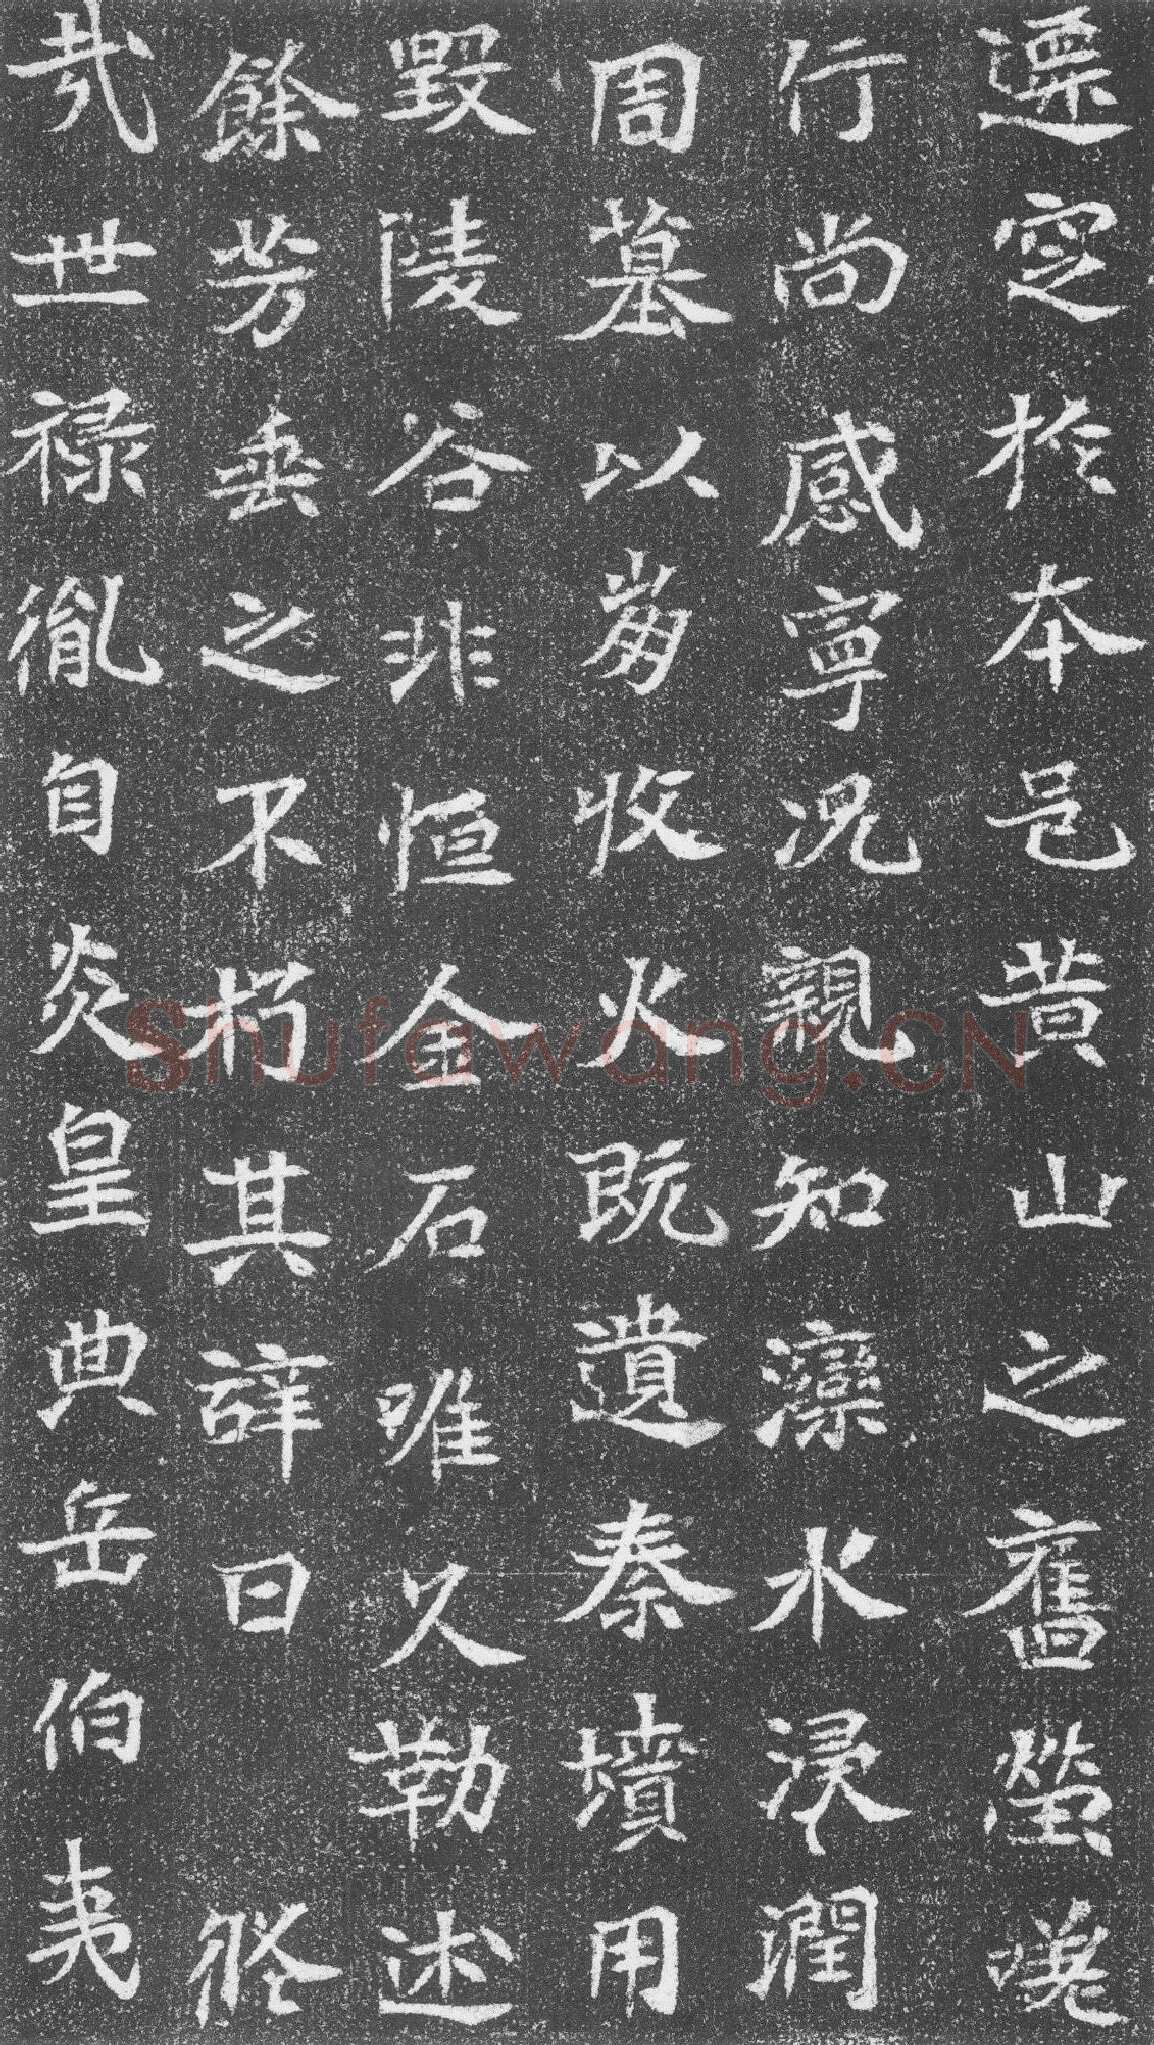 遷窆於本邑黄山之舊塋
行尚感寧况親知灤水浸潤
周墓以芻牧火既遺秦墳用
毀陵谷非恒金石唯久勒述
餘芳垂之不朽其辭曰 脩
哉世禄胤自炎皇典岳伯夷
Shufawang.CN